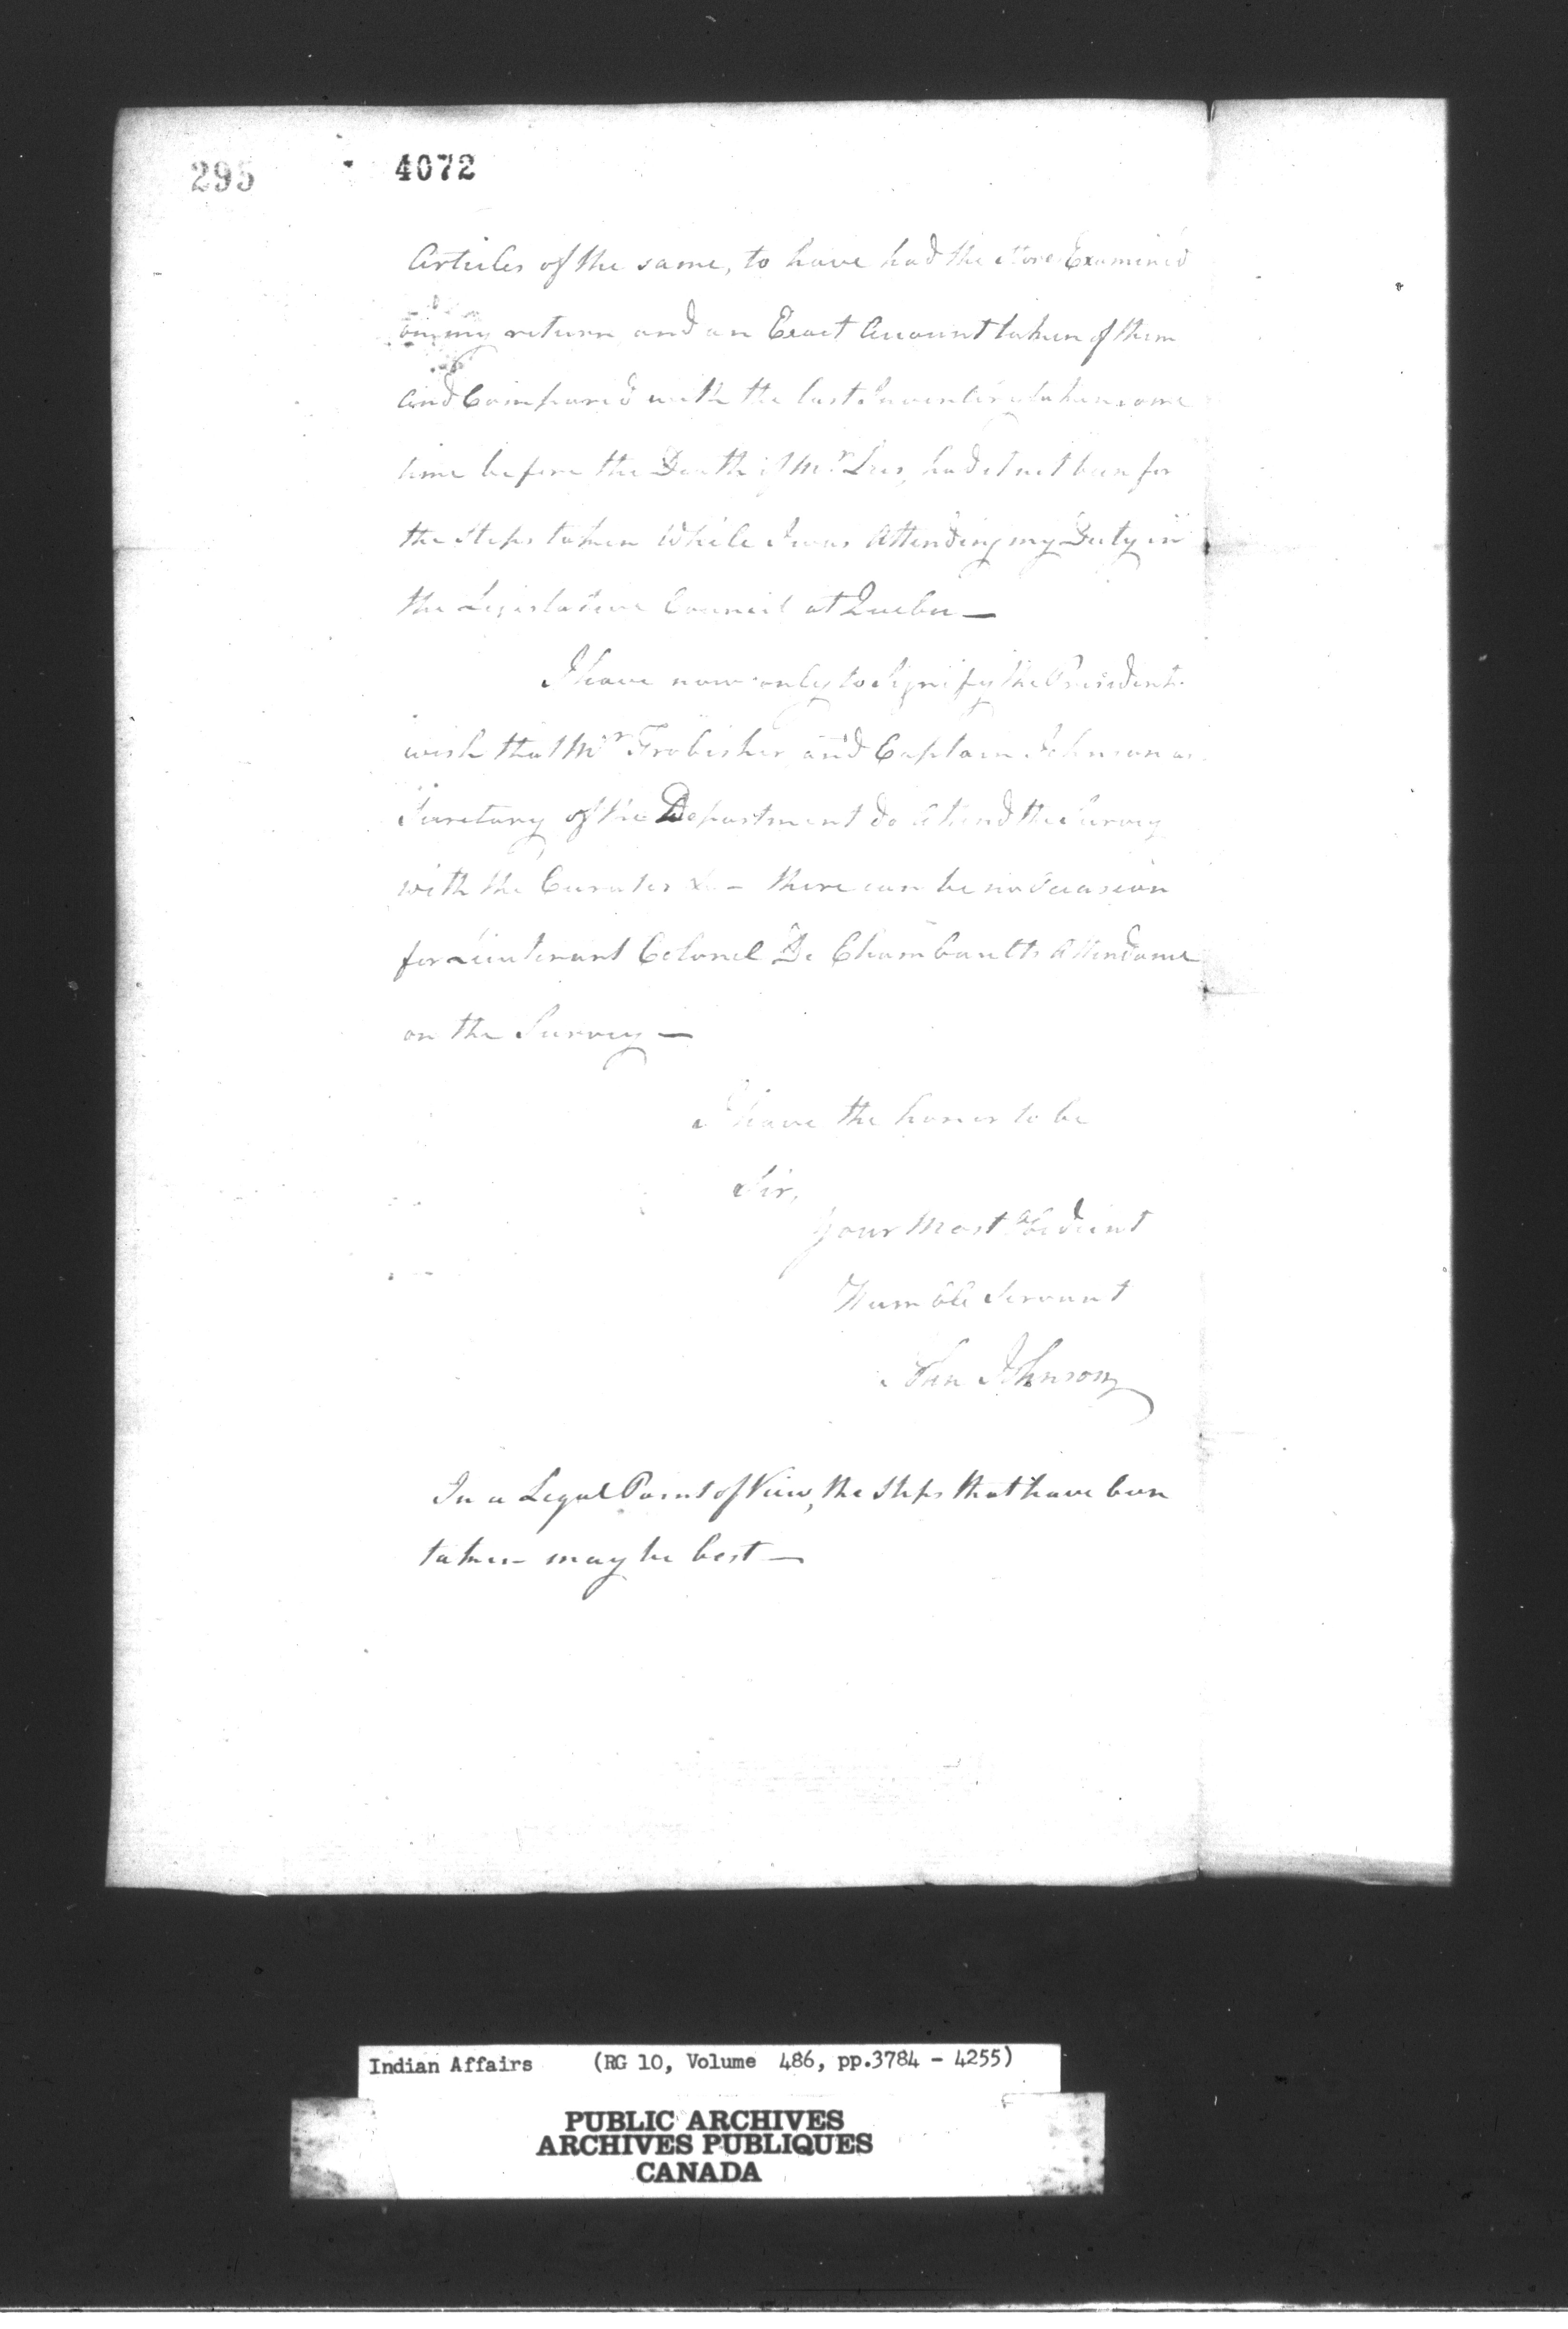 295
4072
Articles of the same, to have had the Store Examined
on my return and an Exact Account taken of them
and Compared with the last Inventory taken some
time before the Death of Mr Lees, had it not been for
the Steps taken While I was Attending my Duty in
the Legislative Council at Quebec —
I have now only to Signify the Presidents
wish that Mr Frobisher and Captain Johnson as
Secretary of the Department do Attend the Survey
with the Curator &c — there can be no Occasion
for Lieutenant Colonel De Chambaults Attendance
on the Survey —
I have the honor to be
Sir,
Your Most Obedient
Humble Servant
John Johnson
In a Legal Point of View, the Steps that have been
taken — may be best —
Indian Affairs (RG 10, Volume 486, pp.3784 - 4255)
PUBLIC ARCHIVES
ARCHIVES PUBLIQUES
CANADA